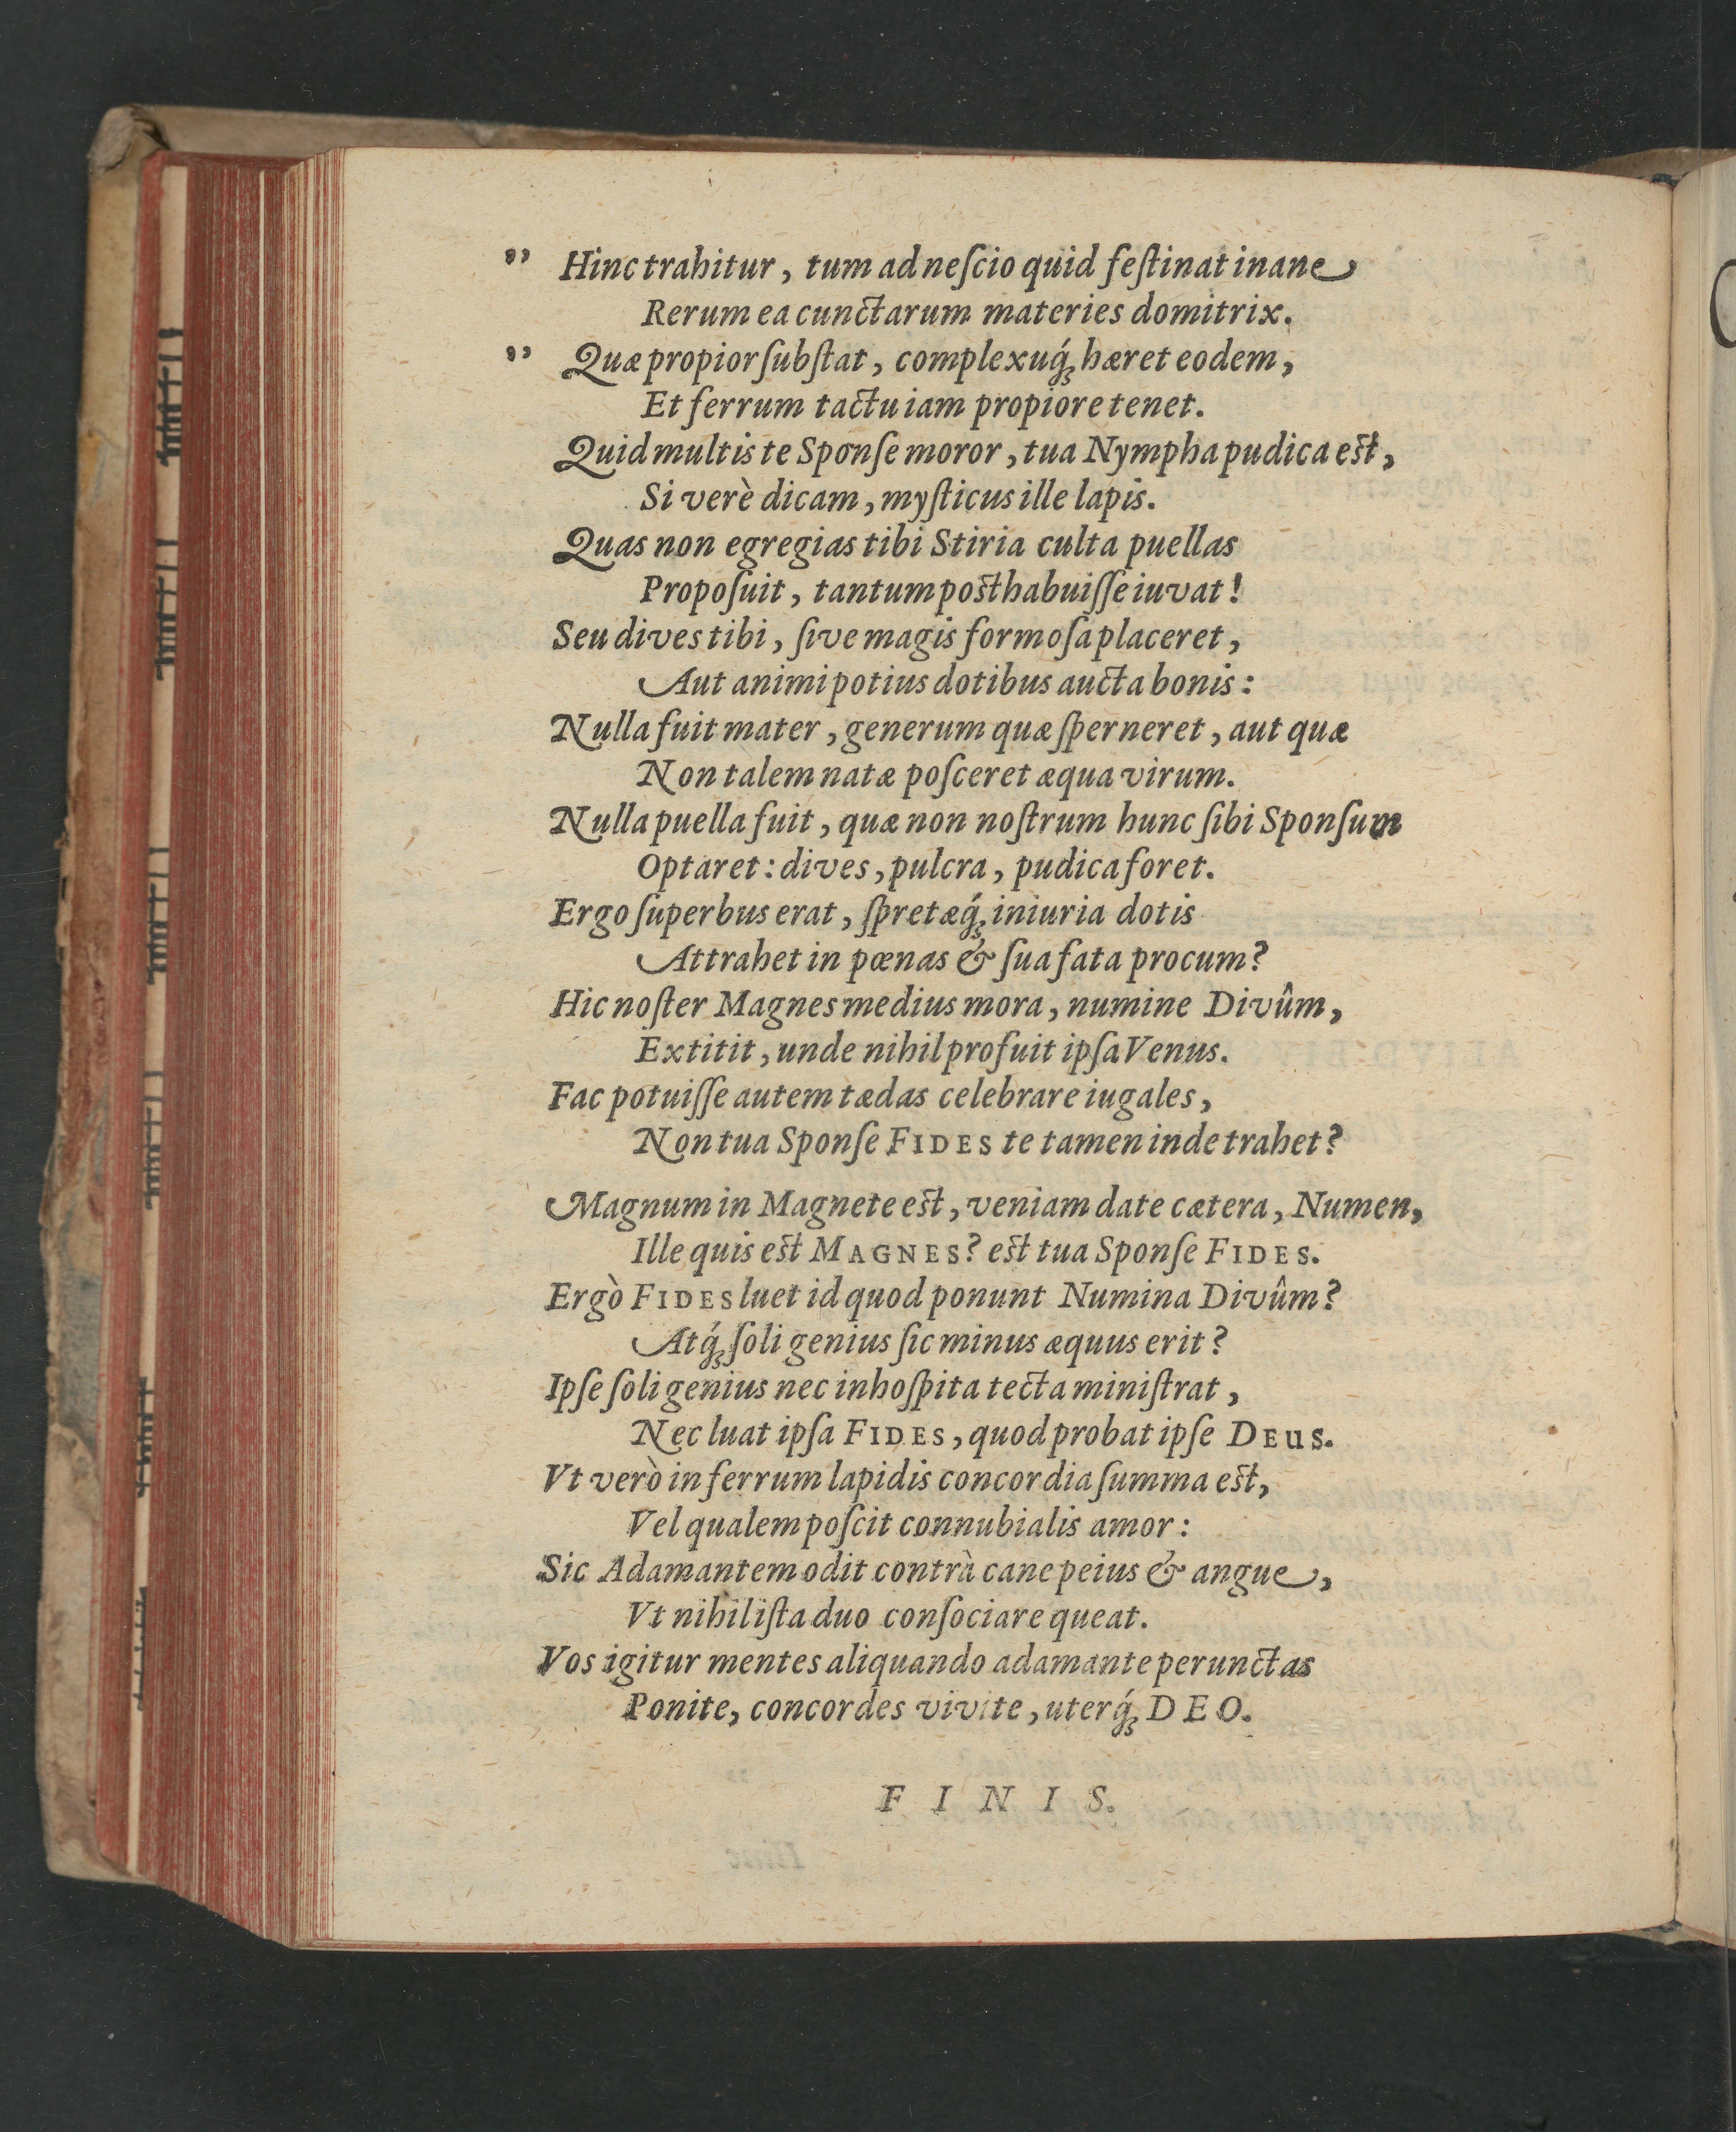 ” Hinc trahitur, tum ad neſcio quid feſtinat inane
Rerum ea cunctarum materies domitrix.
” Quæ propior ſubſtat, complexuq́ꝫ hæret eodem,
Et ferrum tactu iam propiore tenet.
Quid multis te Sponſe moror, tua Nympha pudica est,
Si verè dicam, myſticus ille lapis.
Quas non egregias tibi Stiria culta puellas
Propoſuit, tantum posthabuiſſe iuvat!
Seu dives tibi, ſive magis formoſa placeret,
Aut animi potius dotibus aucta bonis:
Nulla fuit mater, generum quæ ſperneret, aut quæ
Non talem natæ poſceret æqua virum.
Nulla puella fuit, quæ non noſtrum hunc ſibi Sponſum
Optaret: dives, pulcra, pudica foret.
Ergo ſuperbus erat, ſpretæq́ꝫ iniuria dotis
Attrahet in pœnas & ſua fata procum?
Hic noſter Magnes medius mora, numine Divûm,
Extitit, unde nihil profuit ipſa Venus.
Fac potuiſſe autem tædas celebrare iugales,
Non tua Sponſe FIDES te tamen inde trahet?
Magnum in Magnete est, veniam date cætera, Numen,
Ille quis est MAGNES? est tua Sponſe FIDES.
Ergò FIDES luet id quod ponunt Numina Divûm?
Atq́ꝫ ſoli genius ſic minus æquus erit?
Ipſe ſoli genius nec inhoſpita tecta miniſtrat,
Nec luat ipſa FIDES, quod probat ipſe DEuS.
Vt verò in ferrum lapidis concordia ſumma est,
Vel qualem poſcit connubialis amor:
Sic Adamantem odit contrà cane peius & angue,
Vt nihil iſta duo conſociare queat.
Vos igitur mentes aliquando adamante perunctas
Ponite, concordes vivite, uterq́ꝫ DEO.
FINIS.